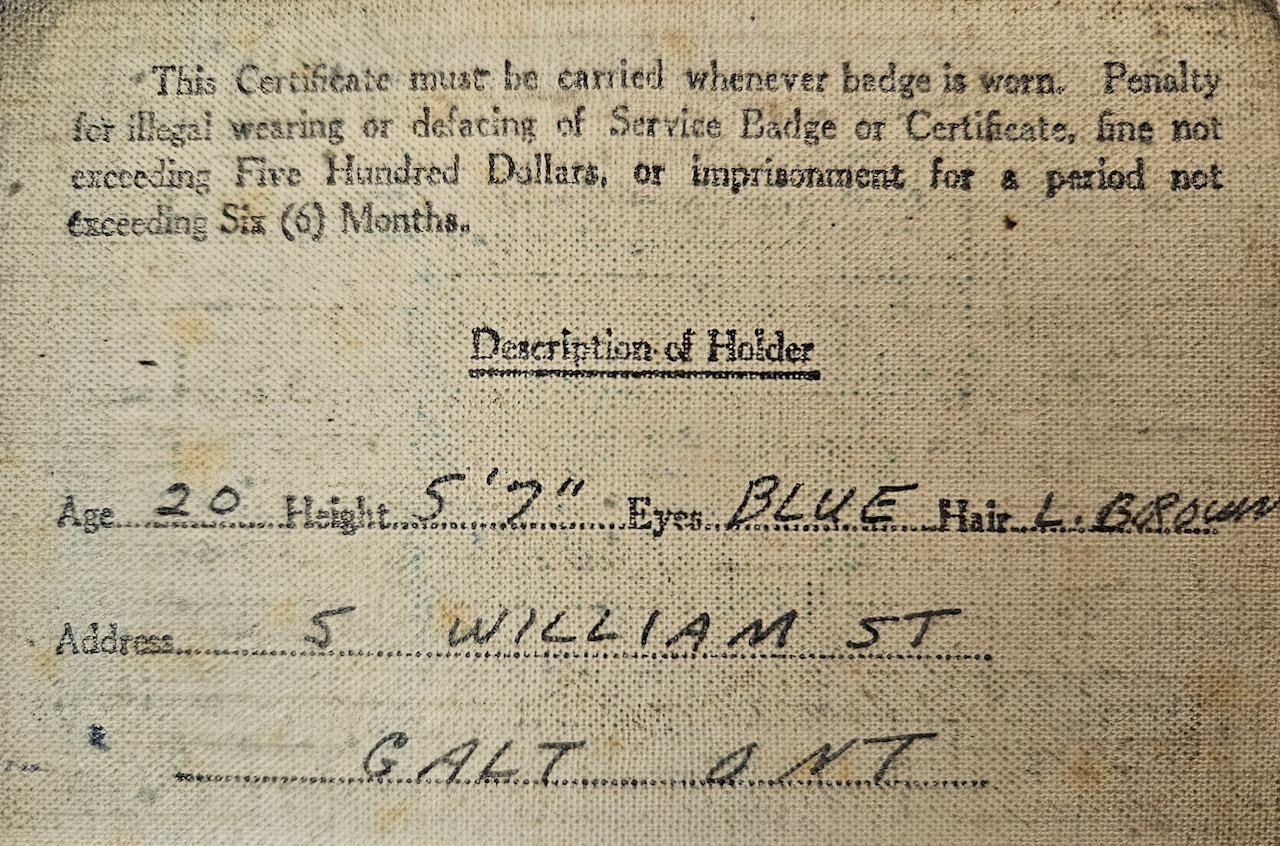 This Certificate must be carried whenever badge is worn. Penalty
for illegal wearing or defacing of Service Badge or Certificate, fine not
exceeding Five Hundred Dollars, or imprisonment for a period not
exceeding Six (6) Months.
Description of Holder
Age 20 Height 5'7" Eyes BLUE Hair L. BROWN
Address 5 WILLIAM ST
GALT ONT